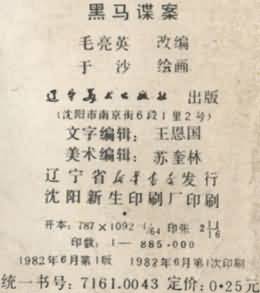 黑马谍案
毛亮英 改编
于沙 绘画
辽宁美术出版社 出版
(沈阳市南京街6段1里2号)
文字编辑: 王恩国
美术编辑: 苏奎林
辽宁省新华书店发行
沈阳新生印刷厂印刷
开本: 787×1092 1/64 印张 2 1/16
印数: 1—885,000
1982年6月第1版 1982年6月第1次印刷
统一书号: 7161.0043 定价: 0·25元